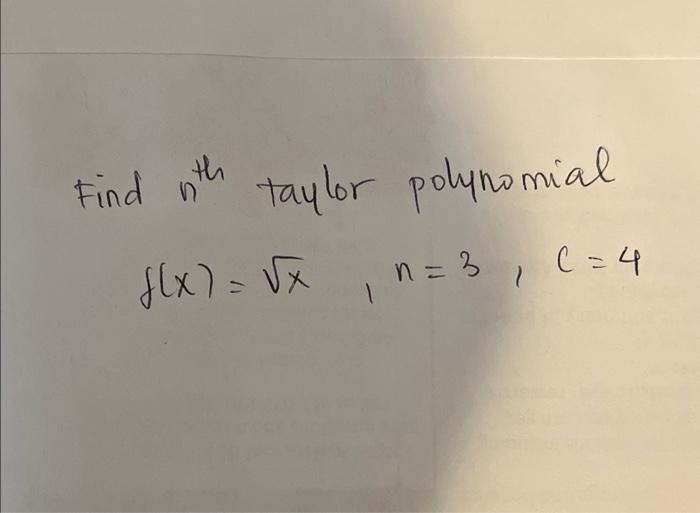 Find nᵗʰ taylor polynomial
f(x) = √x , n = 3 , C = 4